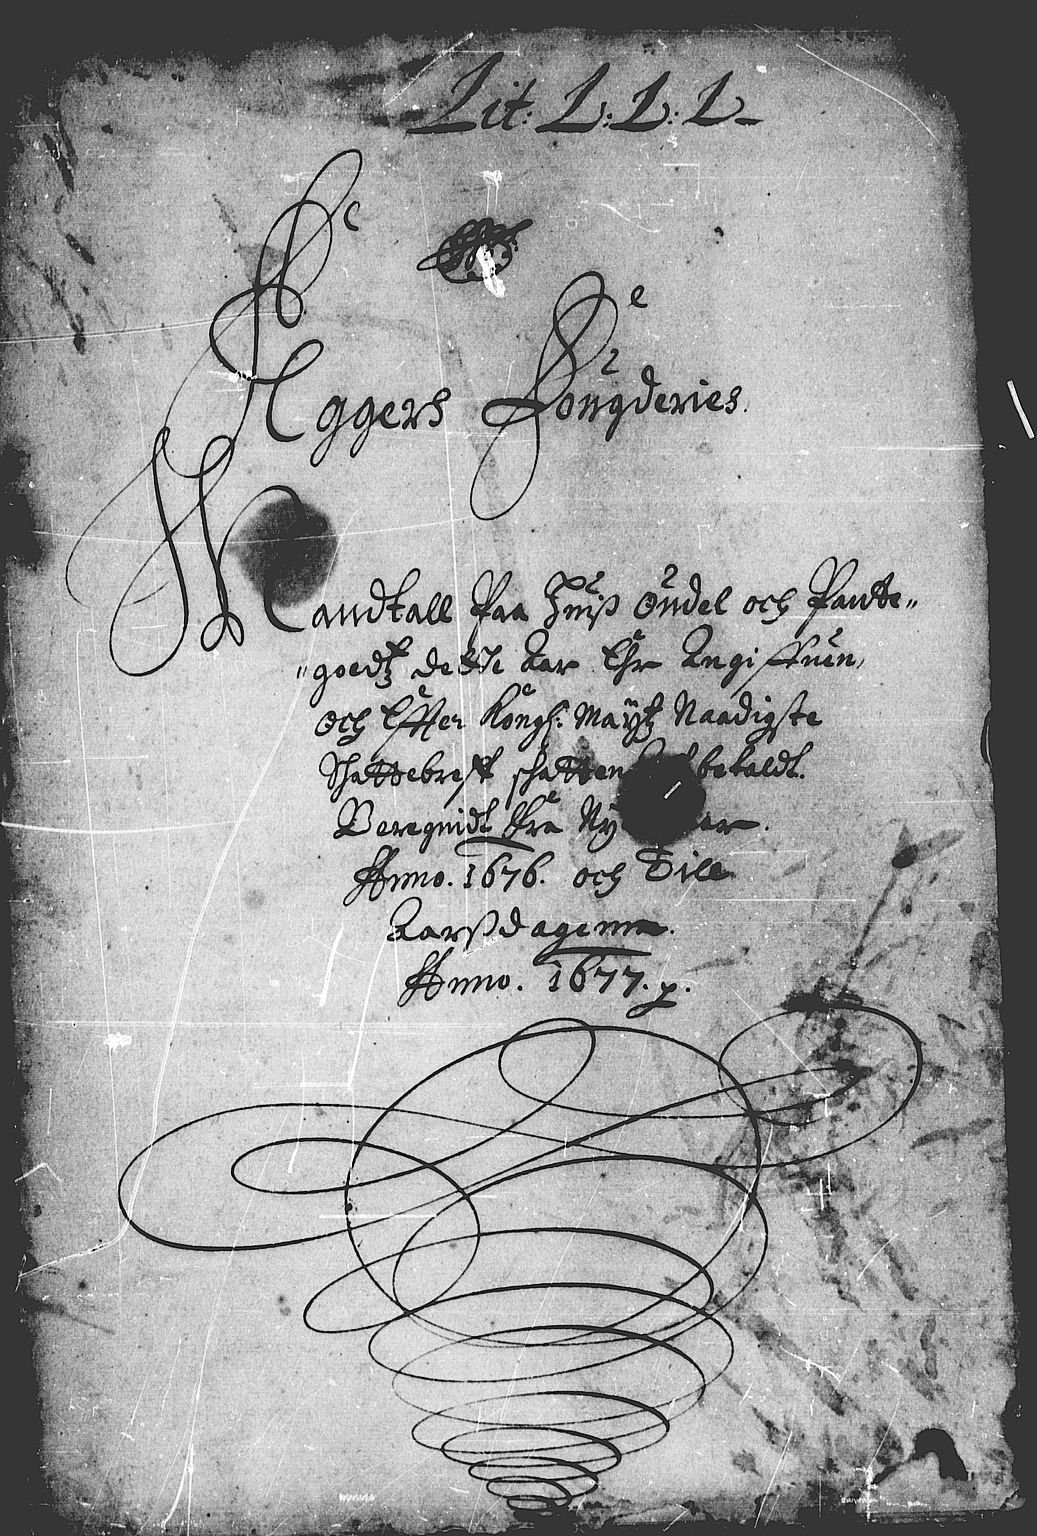 Lit: L: L: L
Aggers Fougderies
Mandtall Paa Huuß Ondel och Pante„
„goedtz dette Aar Ehr Angiffuen,
och Effter Kongl: Maÿtz Naadigste
Schattebreff schatten betaldt.
Beregnidt fra Ny Aar.
Anno. 1676. och Till
Aarßdagenn.
Anno. 1677.